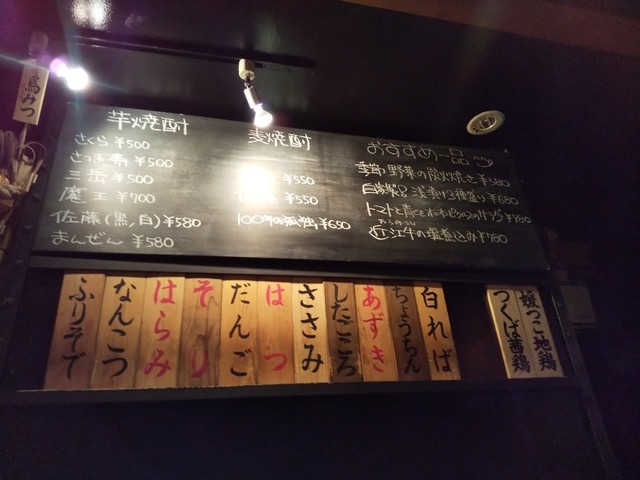 鳥みつ
芋焼酎
さくら ¥500
さつま寿 ¥500
三岳 ¥500
魔王 ¥700
佐藤(黒,白) ¥580
まんぜん ¥580
麦焼酎
¥550
¥550
100年の孤独 ¥650
おすすめ一品
季節野菜の炭火焼き ¥580
浅漬け3種盛り ¥680
トマトと ¥780
近江牛の塩煮込み ¥780
白ればー
ちょうちん
あずき
したごころ
ささみ
はつ
だんご
そり
はらみ
なんこつ
ふりそで
媛っこ地鶏
つくば茜鶏